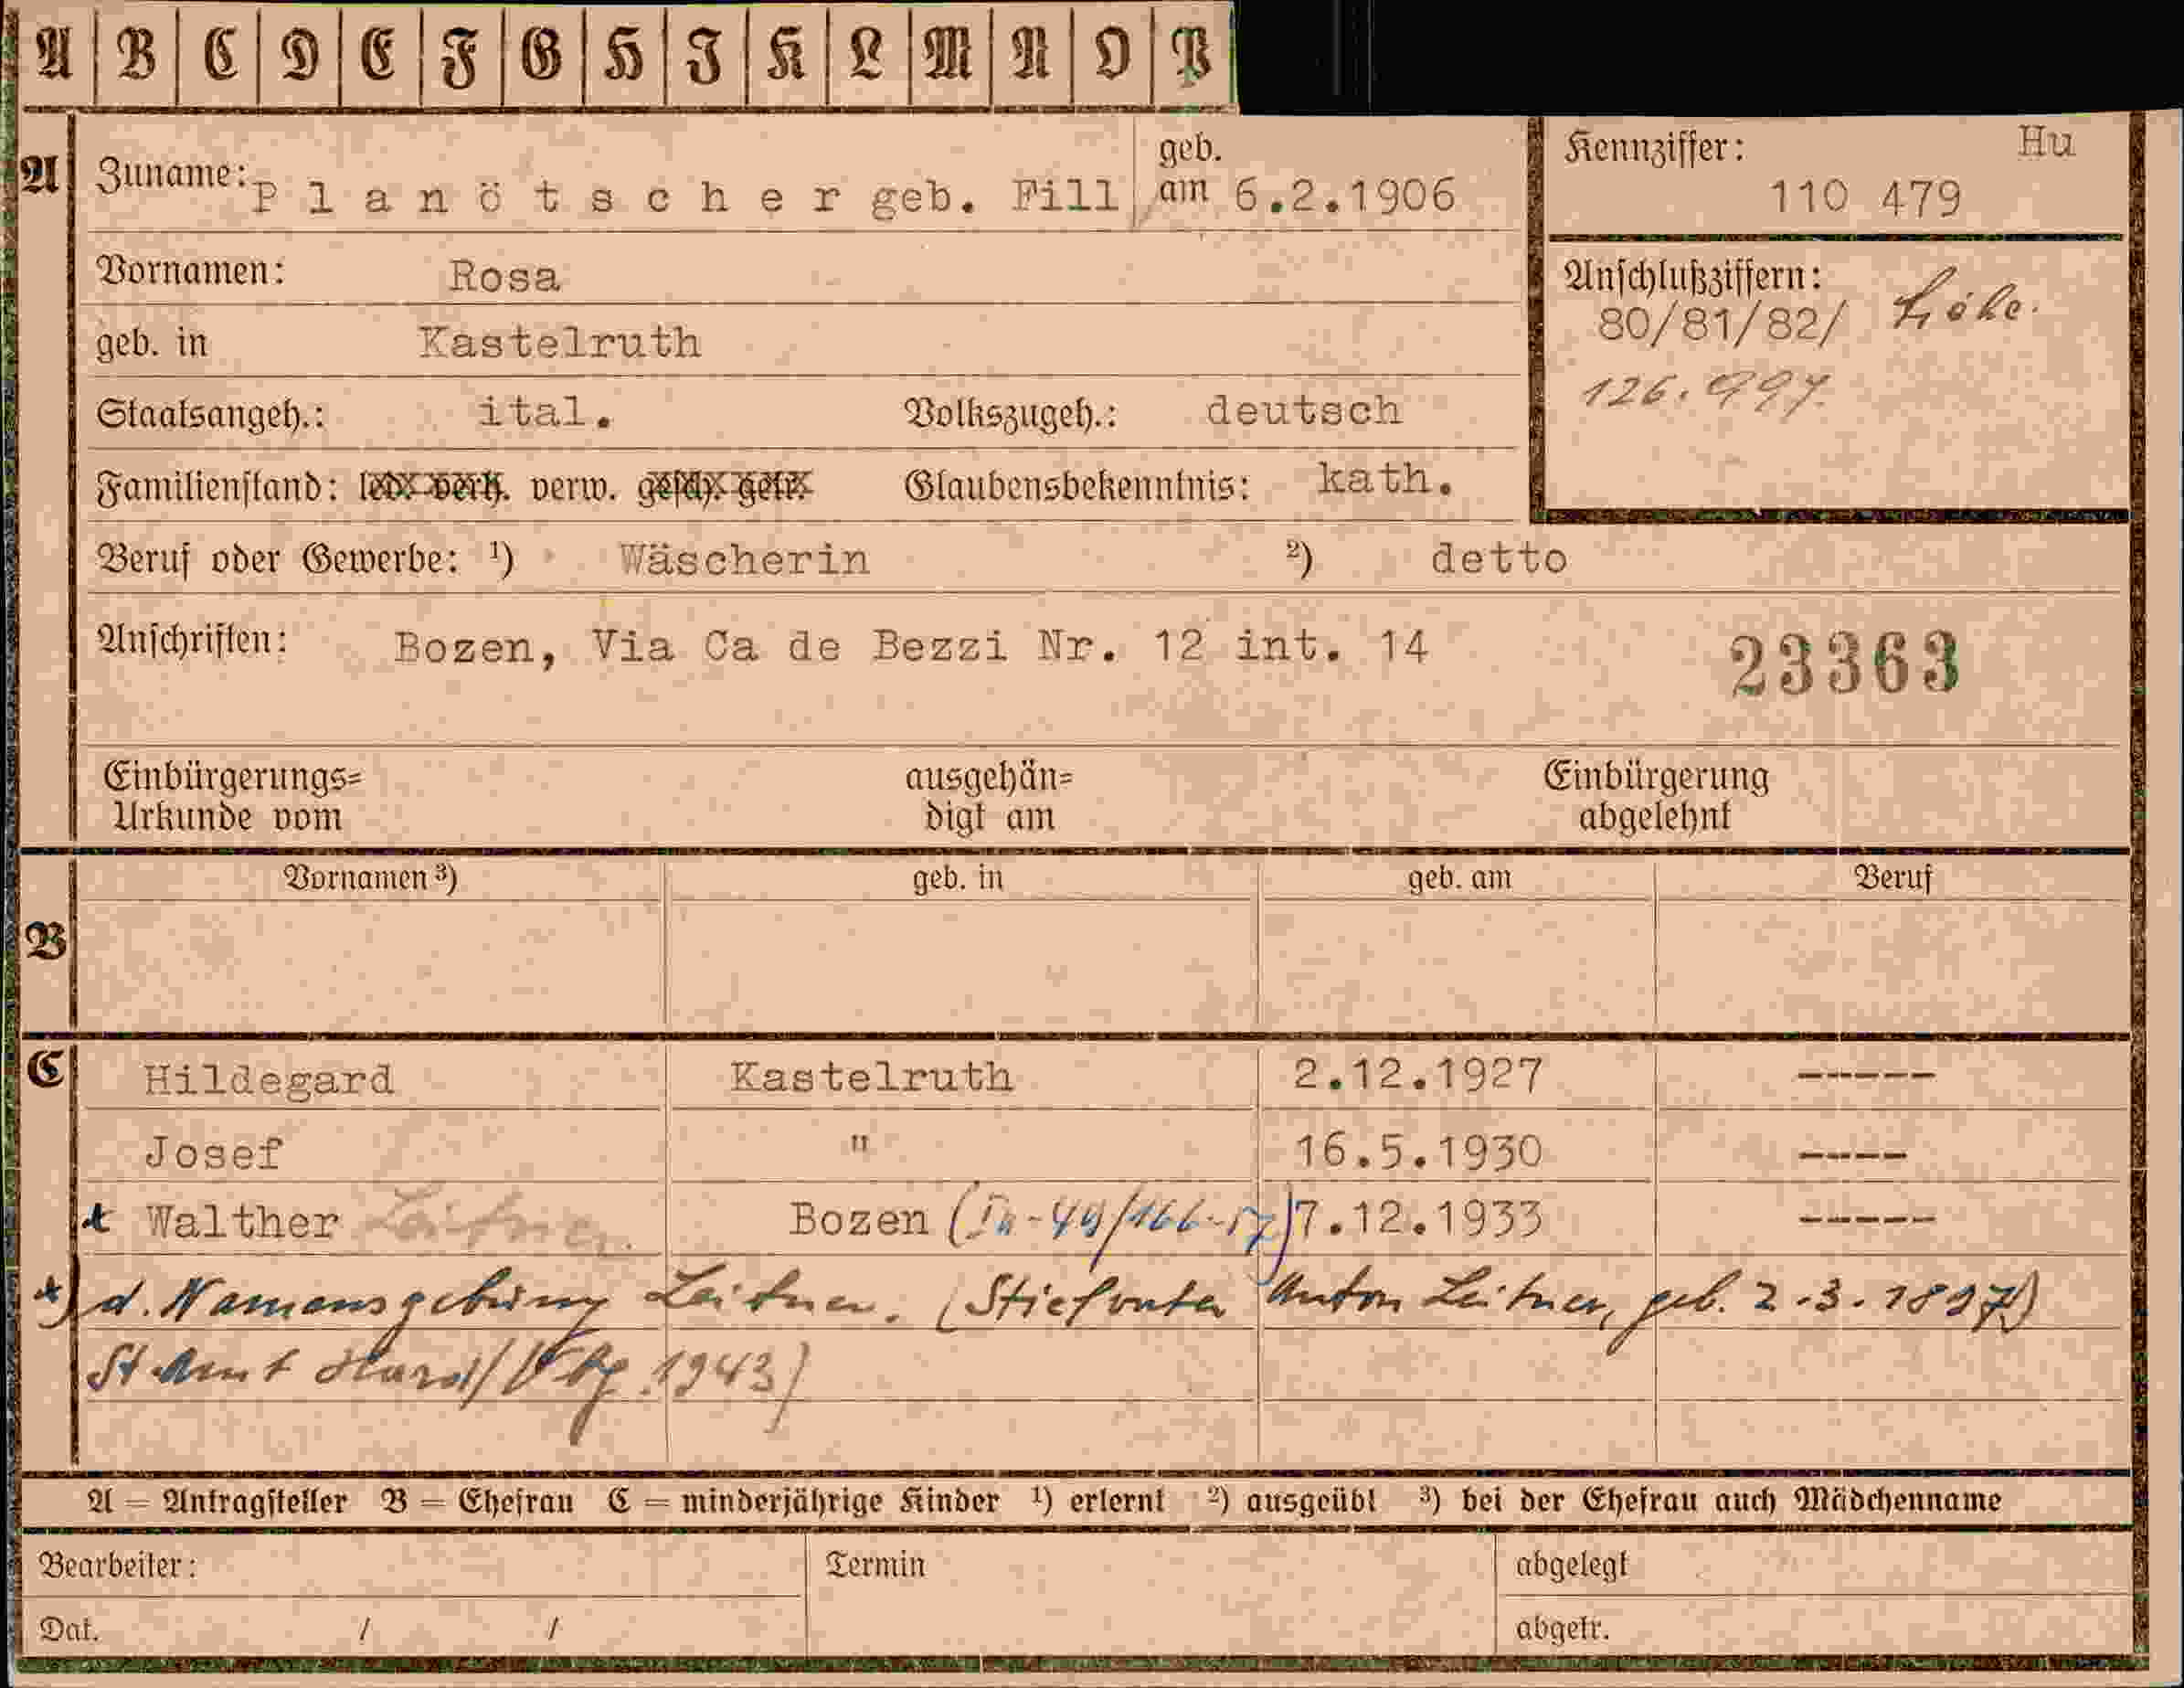 A B C D E F G H I K L M N O P
A Zuname: Planötscher geb. Fill geb. am 6.2.1906
Kennziffer: Hu
110 479
Vornamen: Rosa
Anschlußziffern:
80/81/82/
126.997.
geb. in Kastelruth
Staatsangeh.: ital. Volkszugeh.: deutsch
Familienstand: led. verh. verw. gesch. getr. Glaubensbekenntnis: kath.
Beruf oder Gewerbe: ¹) Wäscherin ²) detto
Anschriften: Bozen, Via Ca de Bezzi Nr. 12 int. 14
23363
Einbürgerungs= ausgehän= Einbürgerung
Urkunde vom digt am abgelehnt
Vornamen ³) geb. in geb. am Beruf
B
C Hildegard Kastelruth 2.12.1927 -----
Josef " 16.5.1930 ----
* Walther Leitner Bozen 7.12.1933 -----
*) d. Namensgebung Leitner. (Stiefvater Anton Leitner, geb. 2.3.1897)
St.Amt Hard/Vbg. 1943)
A = Antragsteller B = Ehefrau C = minderjährige Kinder ¹) erlernt ²) ausgeübt ³) bei der Ehefrau auch Mädchenname
Bearbeiter: Termin abgelegt
Dat. / / abgetr.